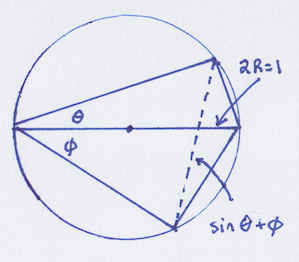 2R=1
θ
ϕ
sin θ+ϕ